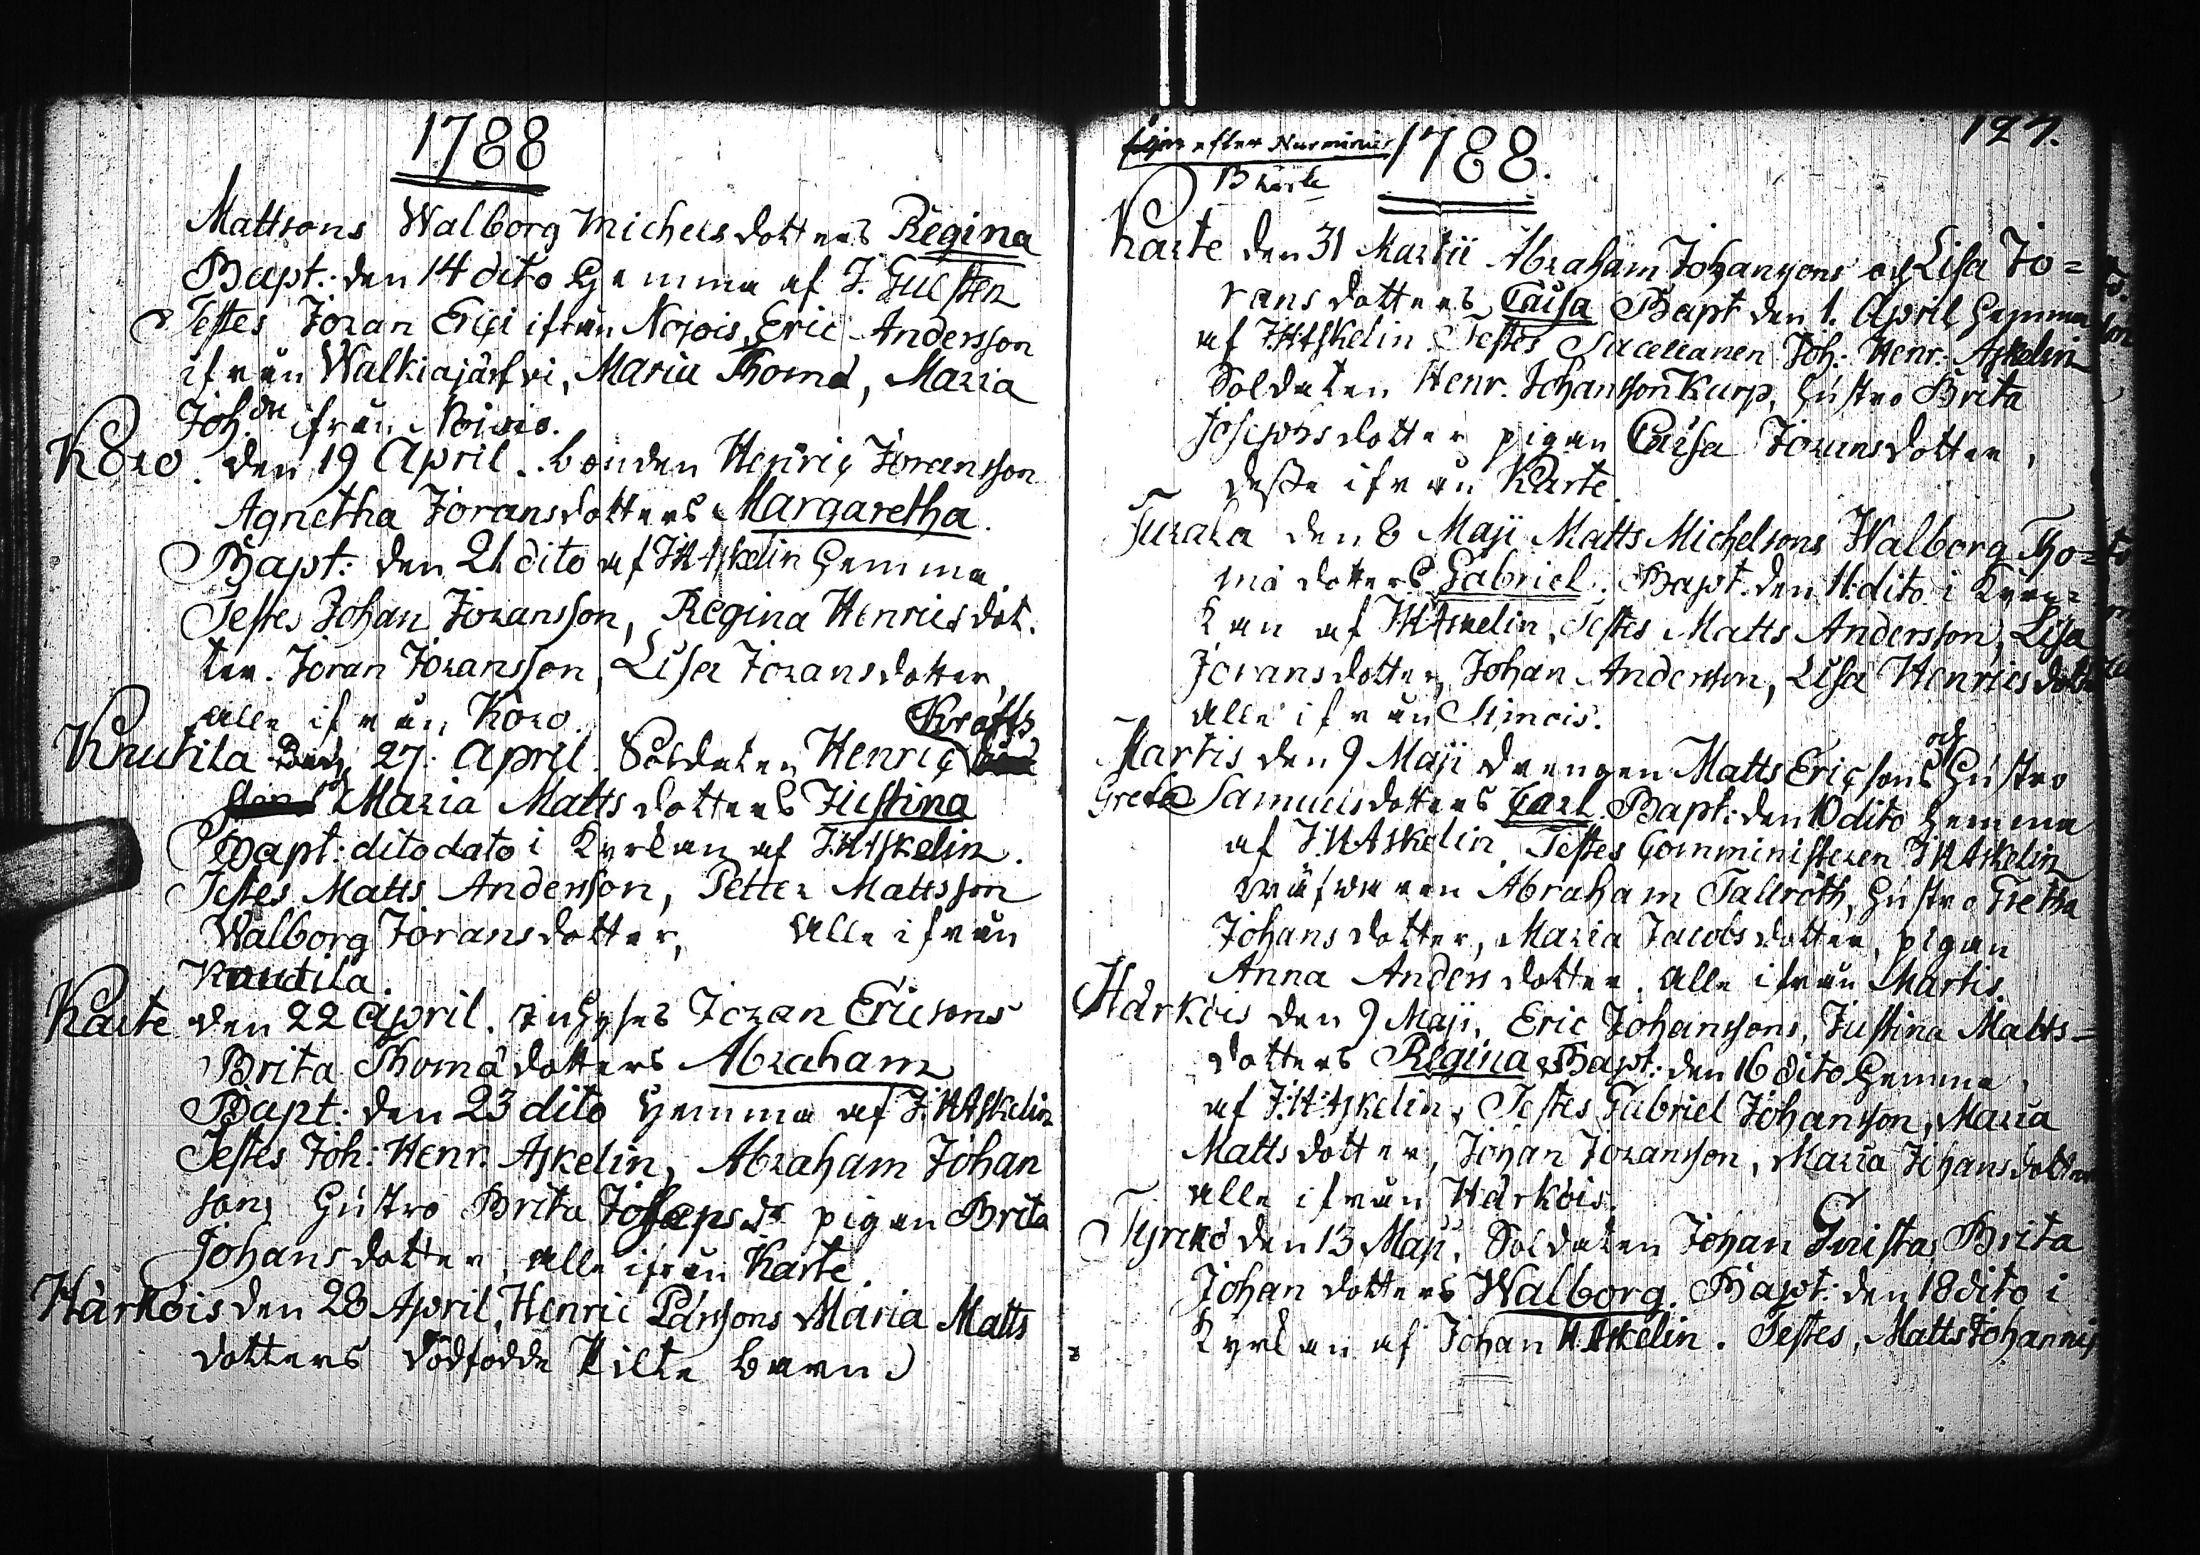 1788
Mattsons Walborg Michelsdotters Regina
Bapt: den 14 dito hemma af J. Gusten
Testes Joran Erici ifrån Nojois, Eric Andersson
ifrån Walkiajärfvi, Maria Thomæ, Maria
Joh.dr ifrån Noisio.
Koro. den 19 April. bonden Henric Joransson
Agnetha Joransdotters Margaretha.
Bapt: den 21 dito af JHAskelin hemma.
Testes Johan Joransson, Regina Henricsdot.
ter. Joran Joransson, Lisa Joransdotter,
alle ifrån Koro.
Kröffs
Knutila 27. April. Soldaten Henric
Maria Mattsdotters Justina
Bapt: dito dato i kyrkan af JHAskelin.
Testes Matts Andersson, Petter Mattsson
Walborg Joransdotter, alle ifrån
Knutila.
Karte den 22 April. inhyses Joran Ericsons
Brita Thomædotters Abraham
Bapt: den 23 dito hemma af J.HAskelin
Testes Joh: Henr. Askelin, Abraham Johan
sons hustro Brita Josepsdr pigan Brita
Johansdotter, alle ifrån Karte.
Härköis den 28 April, Henric Pärssons Maria Matts
dotters dödfödde Pilte barn
127.
efter Nurminen 1788.
B karte
Karte den 31 Martii Abraham Johanssons och Lisa Jo=
ransdotters Caisa Bapt den 1. April hemma
af JHAskelin Testes Sacellanen Joh: Henr: Askelin
Soldaten Henr. Johansson Kurp, hustro Brita
Josephsdotter pigan Caisa Joransdotter,
desse ifrån Karte.
Turala den 8 Maji Matts Michelsons Walborg Tho=
mædotters Gabriel. Bapt. den 11. dito i Kyr=
kan af JHAskelin, Testes Matts Andersson, Lisa
Joransdotter, Johan Andersson, Lisa Henricsdotter
alle ifrån Simois.
Martis den 9 Maji drengen Matts Ericsons och hustro
Greta Samuelsdotters Carl. Bapt: den 10 dito hemma
af J.HAskelin. Testes Comministeren JHAskelin
Abraham Tallroth, hustro Gretha
Johansdotter, Maria Jacobsdotter, pigan
Anna Andersdotter. alle ifrån Martis.
Härköis den 9 Maji, Eric Johanssons, Justina Matts=
dotters Regina Bapt: den 16 dito hemma,
af J:H:Askelin, Testes Gabriel Johansson, Maria
Mattsdotter, Johan Joransson, Maria Johansdotter
alle ifrån Härköis.
den 13 Maji, Soldaten Johan Brita
Johandotters Walborg. Bapt: den 18 dito i
Kyrkan af Johan H.Askelin. Testes, Matts Johannis